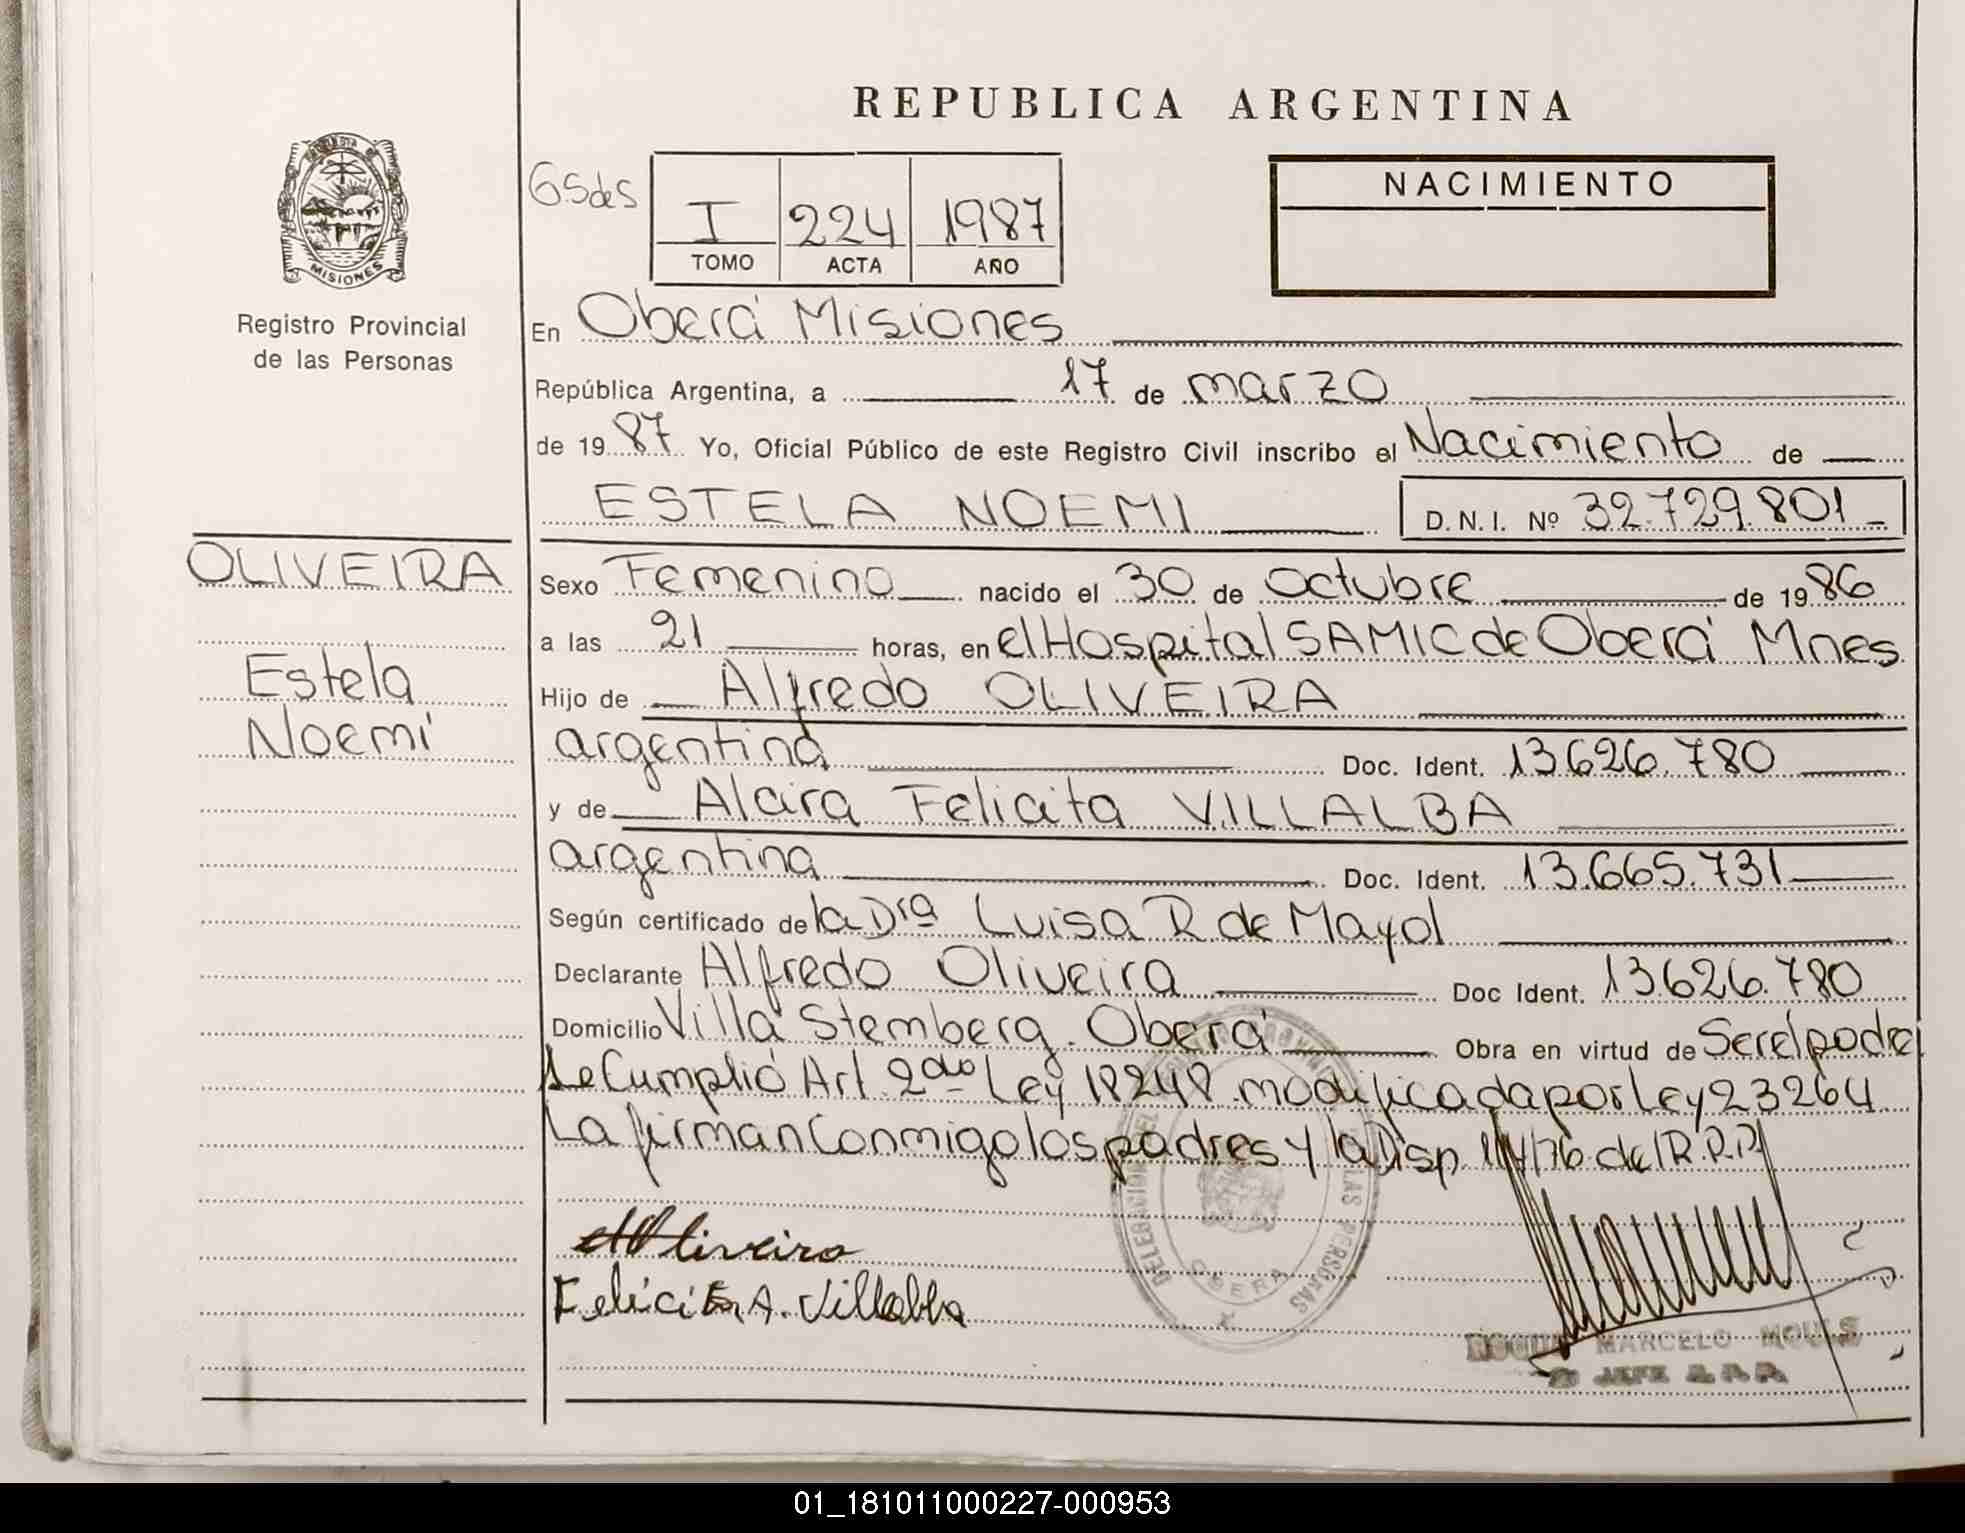 REPUBLICA ARGENTINA
MISIONES
Registro Provincial
de las Personas
I 224 1987
TOMO ACTA AÑO
NACIMIENTO
En Oberá Misiones
República Argentina, a 17 de marzo
de 1987 Yo, Oficial Público de este Registro Civil inscribo el Nacimiento de
ESTELA NOEMI D.N.I. Nº 32.729.801
OLIVEIRA
Estela
Noemí
Sexo Femenino nacido el 30 de Octubre de 1986
a las 21 horas, en el Hospital SAMIC de Oberá Mnes
Hijo de Alfredo OLIVEIRA
argentina Doc. Ident. 13.626.780
y de Alcira Felicita VILLALBA
argentina Doc. Ident. 13.665.731
Según certificado de la Dra Luisa R de Mayol
Declarante Alfredo Oliveira Doc Ident. 13.626.780
Domicilio Villa Stemberg. Oberá Obra en virtud de Ser el padre
Se Cumplió Art. 2do Ley 18248 modificada por Ley 23264
La firman Conmigo los padres y la Disp 114/76 del R.P.P.
A Oliveira
Felicita A. Villalba
DELEGACION DEL LAS PERSONAS
OBERA
MARCELO
JEFE
01_181011000227-000953